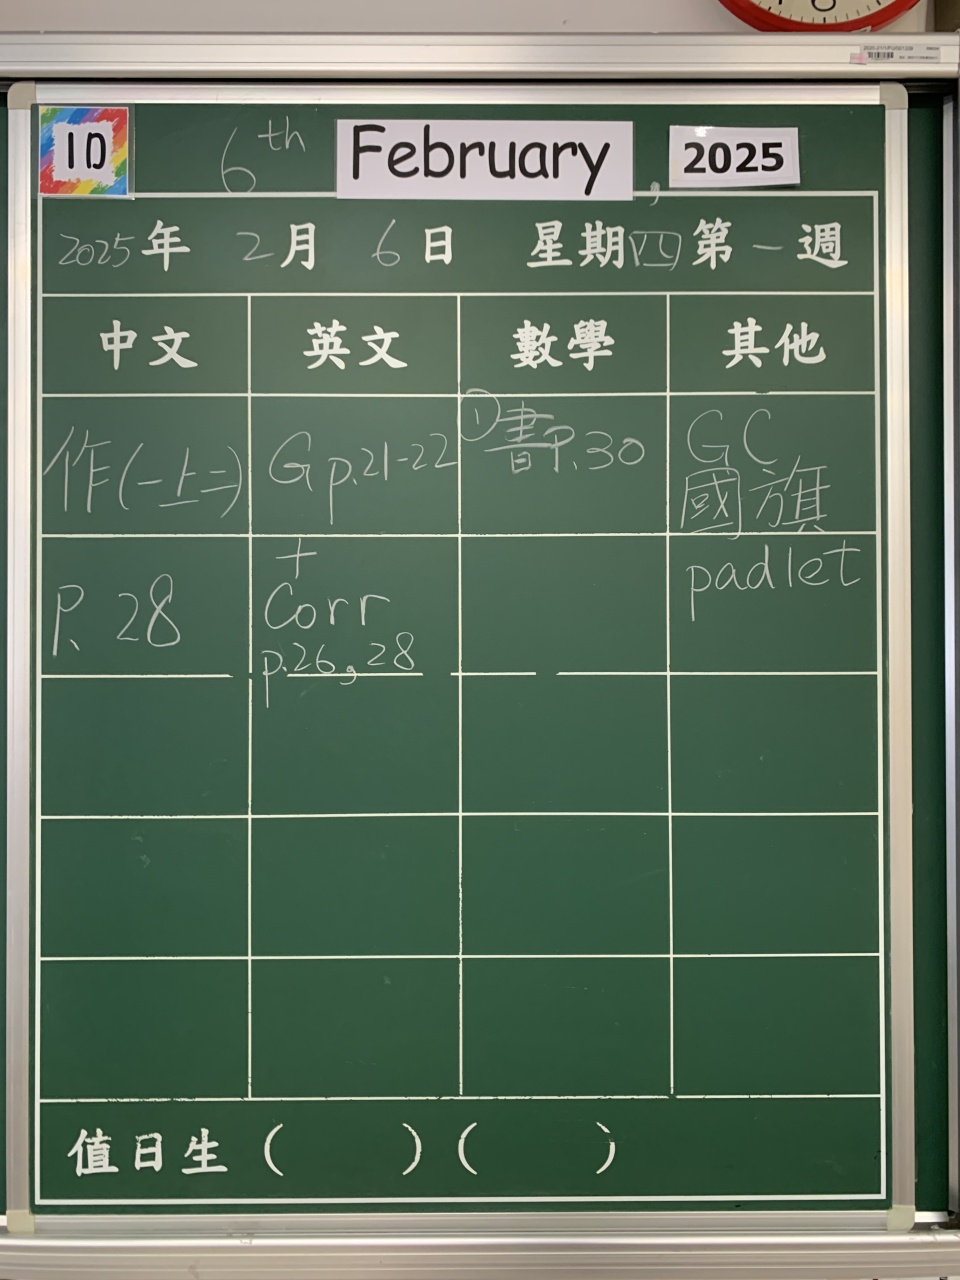 1D
6th February, 2025
2025年 2月 6日 星期四 第一週
中文 英文 數學 其他
作(一上二) G p.21-22 ①書P.30 GC
國旗
P. 28 + padlet
Corr
p.26, 28
值日生 ( ) ( )